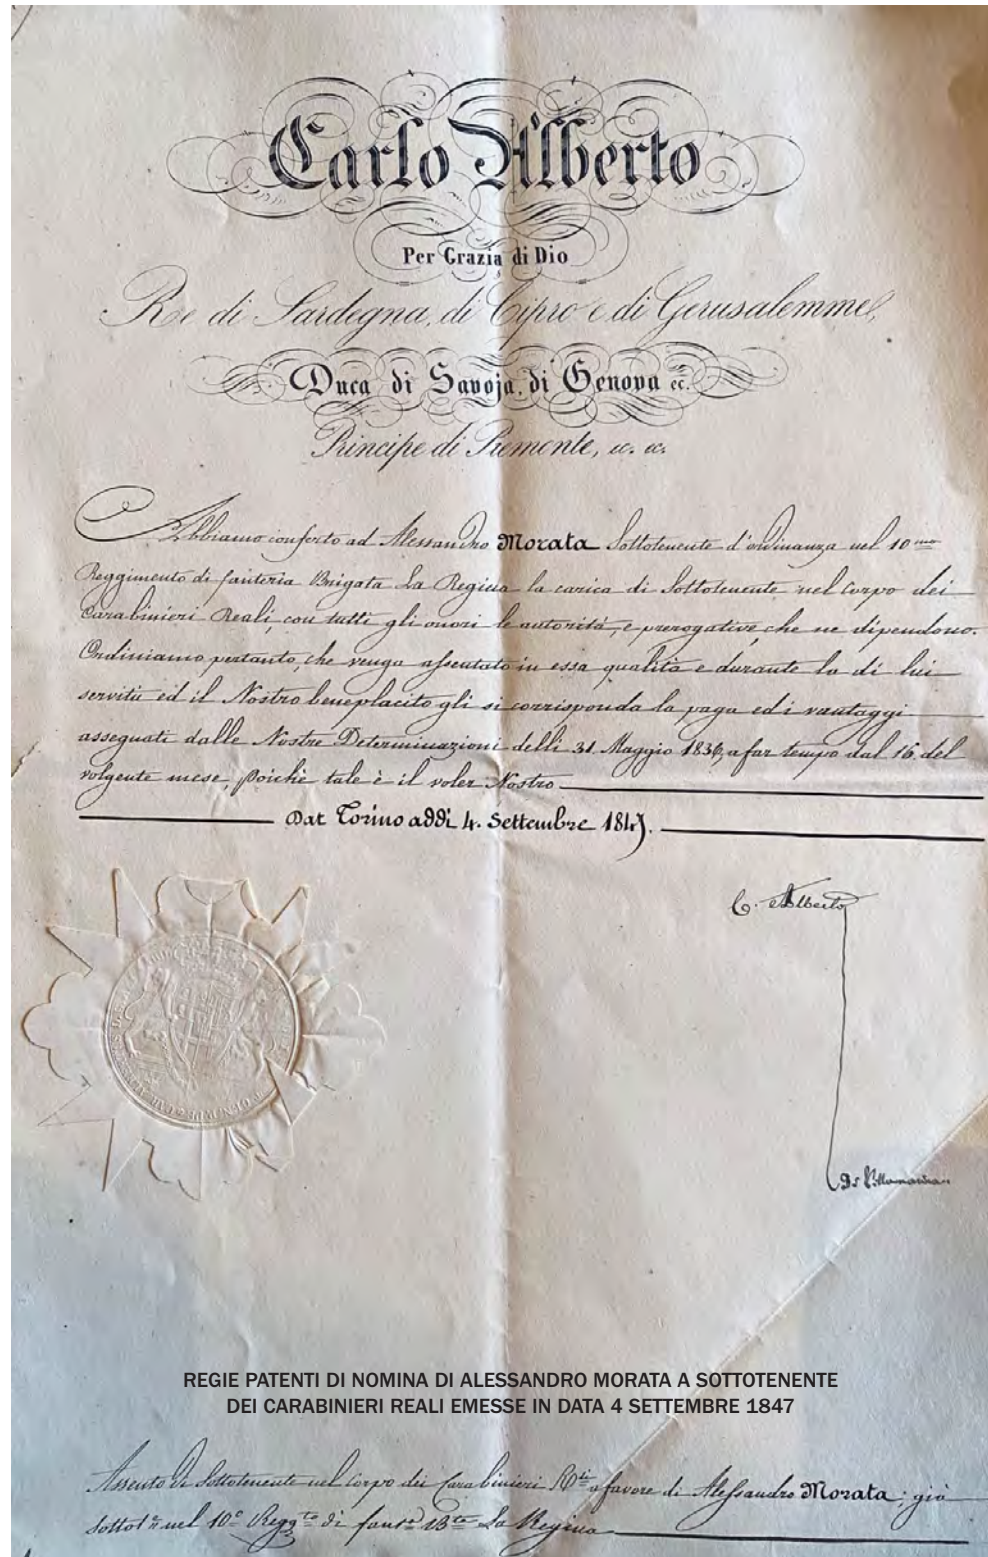 Carlo Alberto
Per Grazia di Dio
Re di Sardegna, di Cipro e di Gerusalemme,
Duca di Savoja, di Genova ec.
Principe di Piemonte, ec. ec.
Abbiamo conferto ad Alessandro Morata Sottotenente d'ordinanza nel 10mo
Reggimento di fanteria Brigata La Regina la carica di Sottotenente nel Corpo dei
Carabinieri Reali, con tutti gli onori le autorità, e prerogative, che ne dipendono.
Ordiniamo pertanto, che venga assentato in essa qualità e durante la di lui
servitù ed il Nostro beneplacito gli si corrisponda la paga ed i vantaggi
assegnati dalle Nostre Determinazioni delli 31 Maggio 1836, a far tempo dal 16 del
volgente mese, poichè tale è il voler Nostro
Dat Torino addì 4. Settembre 1847.
C. Alberto
Di Villamarina
REGIE PATENTI DI NOMINA DI ALESSANDRO MORATA A SOTTOTENENTE
DEI CARABINIERI REALI EMESSE IN DATA 4 SETTEMBRE 1847
Assento di Sottotenente nel Corpo dei Carabinieri a favore di Alessandro Morata; già
nel 10º Reggto di La Regina